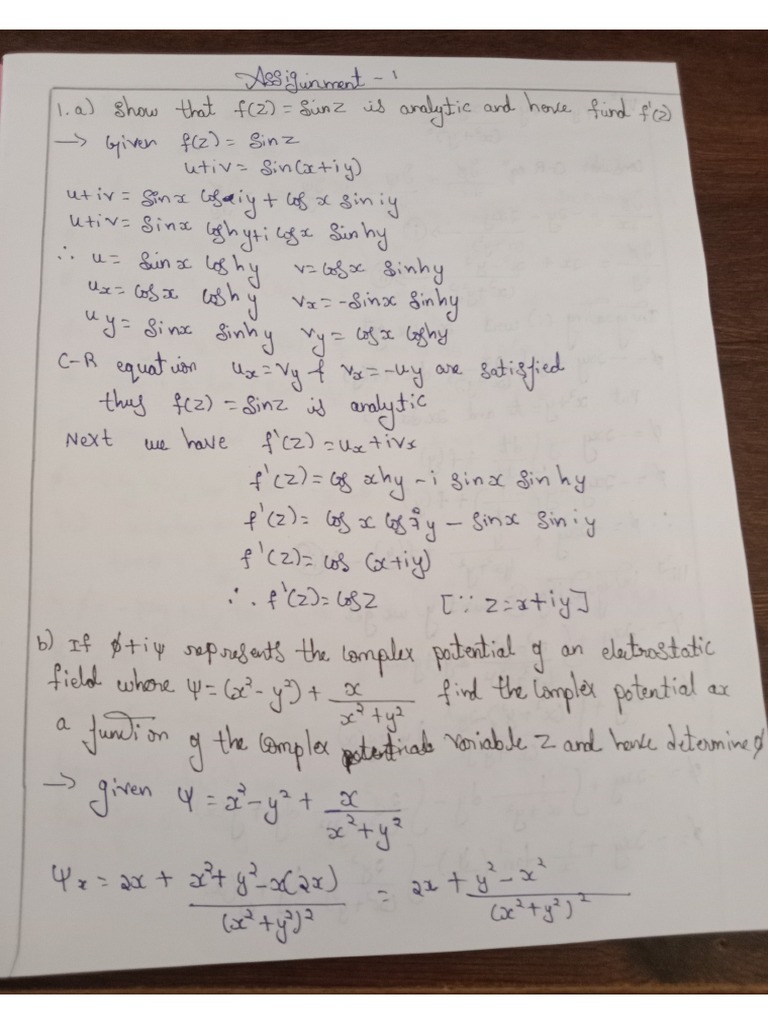 Assignment - 1
1. a) Show that f(z) = Sinz is analytic and hence find f'(z)
→ Given f(z) = Sinz
u+iv = Sin(x+iy)
u+iv = Sinx Cos iy + Cos x Sin iy
u+iv = Sinx Coshy + i Cosx Sinhy
∴ u = Sinx Coshy v = Cosx Sinhy
ux = Cosx Coshy vx = -Sinx Sinhy
uy = Sinx Sinhy vy = Cosx Coshy
C-R equation ux = vy & vx = -uy are satisfied
thus f(z) = Sinz is analytic
Next we have f'(z) = ux + ivx
f'(z) = Cos xhy - i Sinx Sin hy
f'(z) = Cos x Cos iy - Sinx Sin iy
f'(z) = Cos (x+iy)
∴ f'(z) = Cosz [∵ z = x+iy]
b) If ϕ+iψ represents the complex potential of an electrostatic
field where ψ = (x² - y²) + x/(x² + y²) find the complex potential as
a function of the complex variable z and hence determine ϕ
→ given ψ = x² - y² + x/(x² + y²)
ψx = 2x + (x² + y² - x(2x))/(x² + y²)² = 2x + (y² - x²)/(x² + y²)²